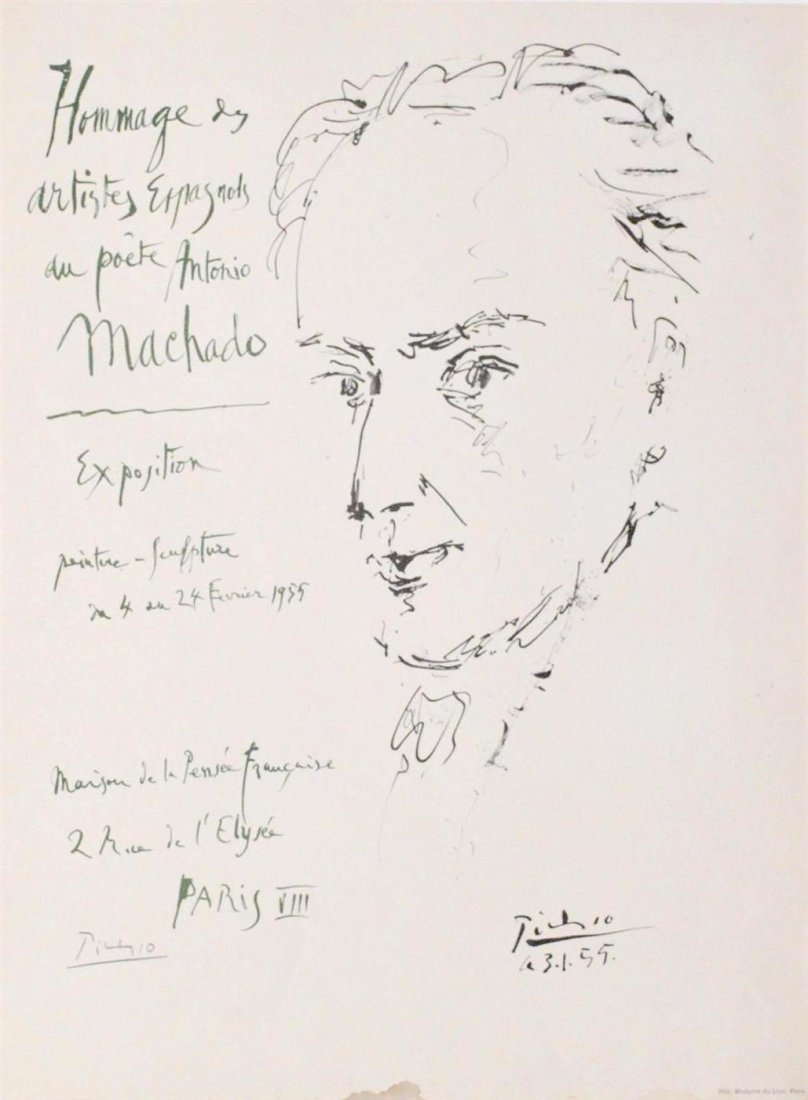 Hommage des
artistes Espagnols
au poète Antonio
Machado
Exposition
peinture - Sculpture
du 4 au 24 Février 1955
Maison de la Pensée Française
2 Rue de l'Elysée
PARIS VIII
Picasso
Picasso
3.1.55.